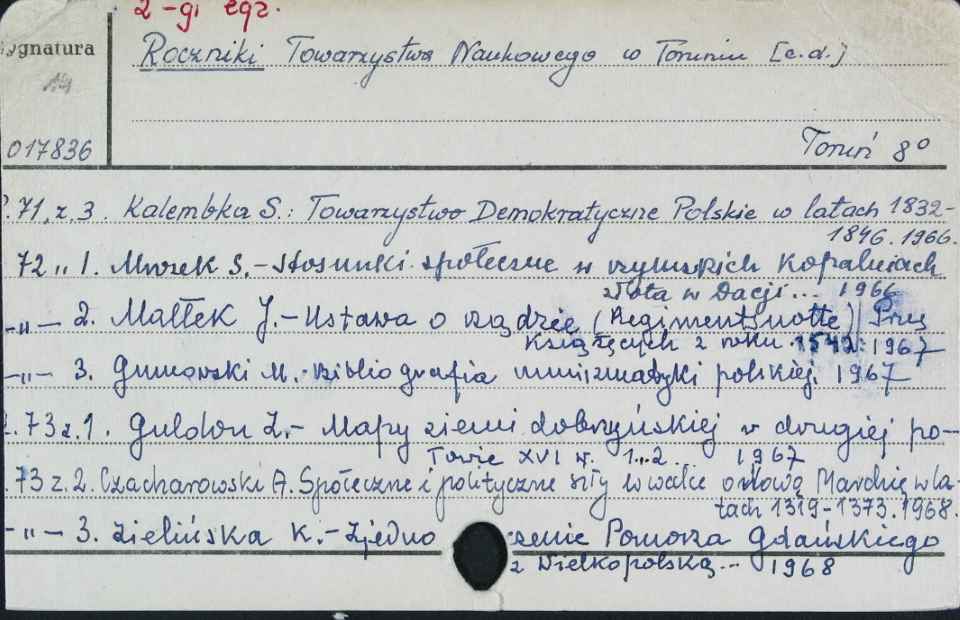 2-gi egz.
Sygnatura
Roczniki Towarzystwa Naukowego w Toruniu [c.d.]
017836
Toruń 8°
R.71, z. 3. Kalembka S.: Towarzystwo Demokratyczne Polskie w latach 1832-
1846. 1966.
72 „ 1. Mrozek S. - Stosunki społeczne w rzymskich kopalniach
złota w Dacji... 1966
-„- 2. Małłek J. - Ustawa o rządzie (Regimentsnottel) Prus
Książęcych z roku 1542: 1967
-„- 3. Gumowski M. - Bibliografia numizmatyki polskiej. 1967
R.73 z.1. Guldon Z. - Mapy ziemi dobrzyńskiej w drugiej po-
łowie XVI w. 1...2... 1967
73 z.2. Czacharowski A. Społeczne i polityczne siły w walce o Nową Marchię w la-
tach 1319-1373. 1968.
-„- 3. Zielińska K. - Zjednoczenie Pomorza Gdańskiego
z Wielkopolską... 1968